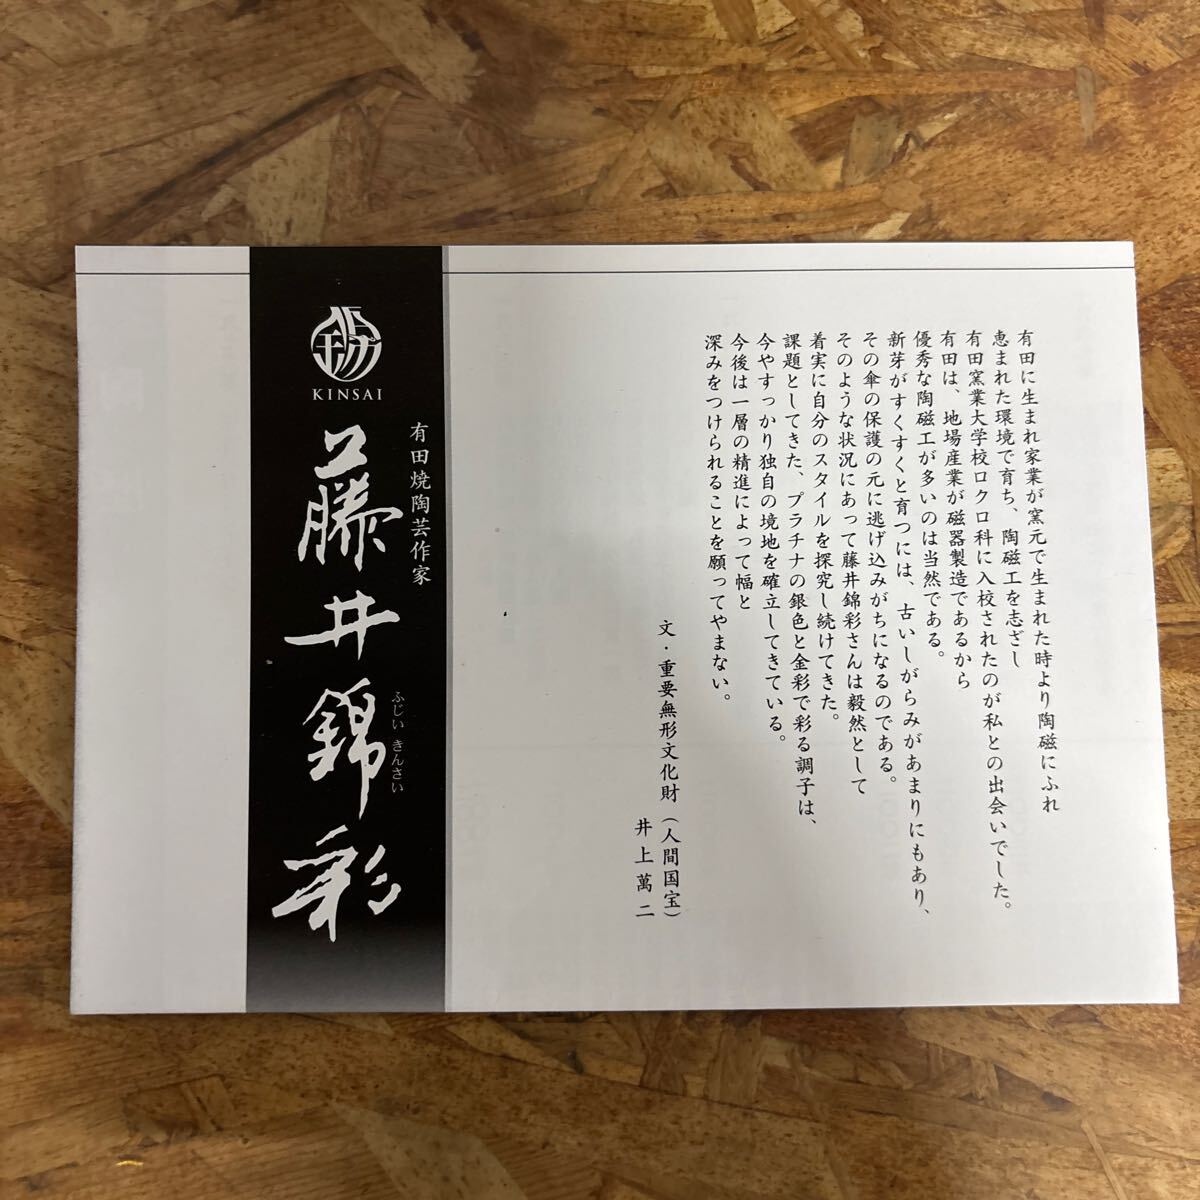 有田に生まれ家業が窯元で生まれた時より陶磁にふれ
恵まれた環境で育ち、陶磁工を志ざし
有田窯業大学校ロクロ科に入校されたのが私との出会いでした。
有田は、地場産業が磁器製造であるから
優秀な陶磁工が多いのは当然である。
新芽がすくすくと育つには、古いしがらみがあまりにもあり、
その傘の保護の元に逃げ込みがちになるのである。
そのような状況にあって藤井錦彩さんは毅然として
着実に自分のスタイルを探究し続けてきた。
課題としてきた、プラチナの銀色と金彩で彩る調子は、
今やすっかり独自の境地を確立してきている。
今後は一層の精進によって幅と
深みをつけられることを願ってやまない。
文・重要無形文化財（人間国宝）
井上萬二
KINSAI
有田焼陶芸作家
藤井錦彩
ふじい きんさい